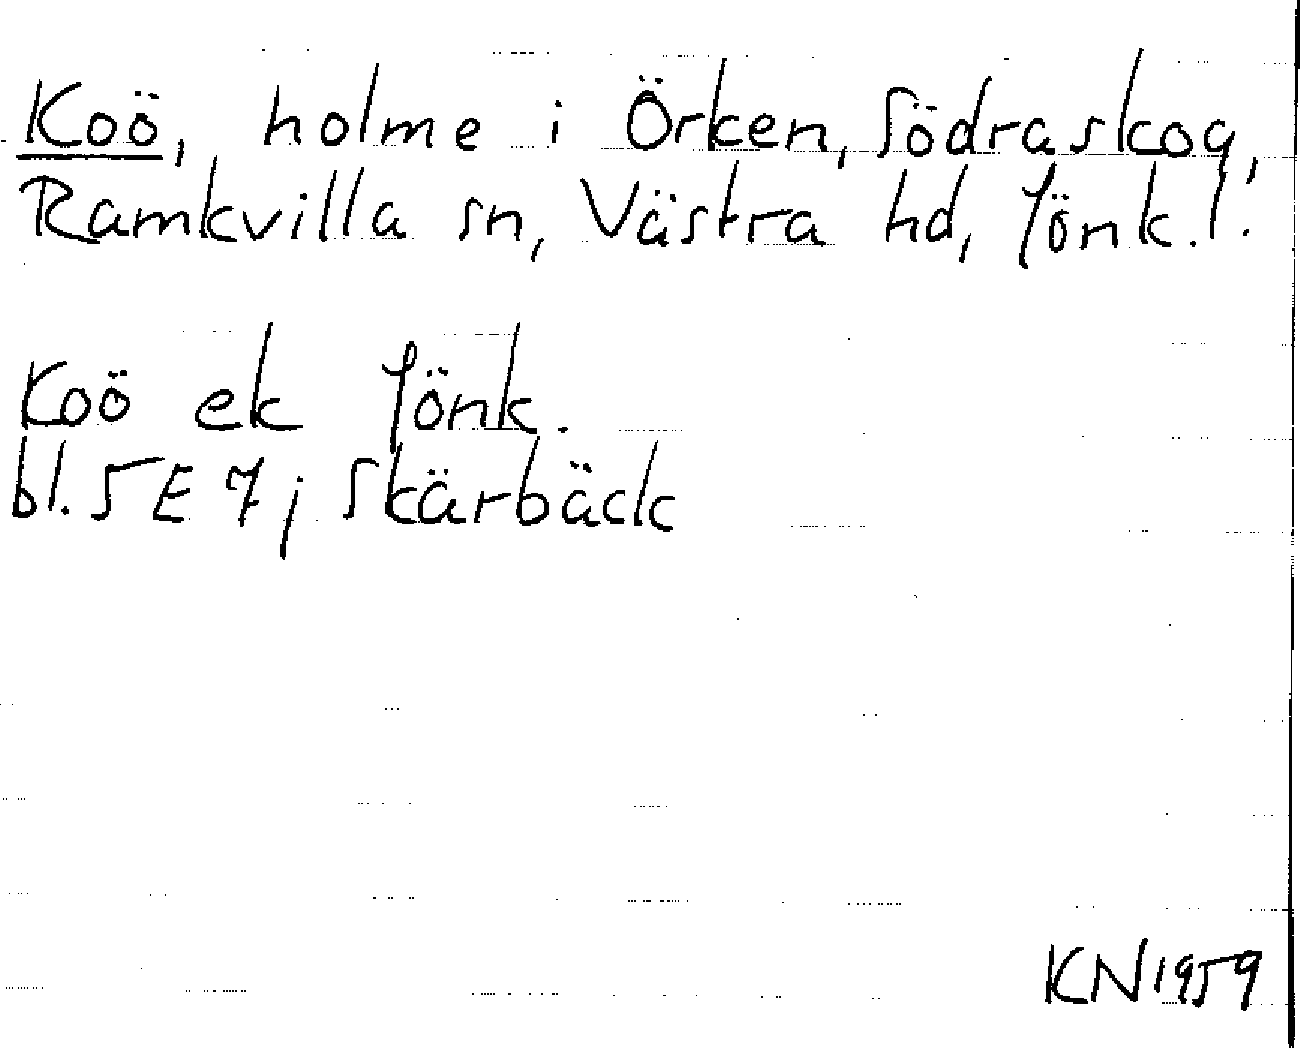 Koö, holme i Örken, Södraskog,
Ramkvilla sn, Västra hd, Jönk. l.
Koö ek Jönk.
bl. 5 E 7 j Skärbäck
KN 1959